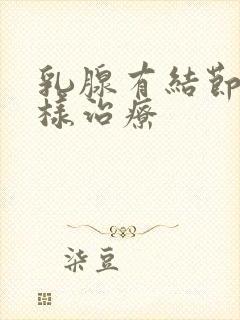 乳腺有結節
樣治療
柒豆